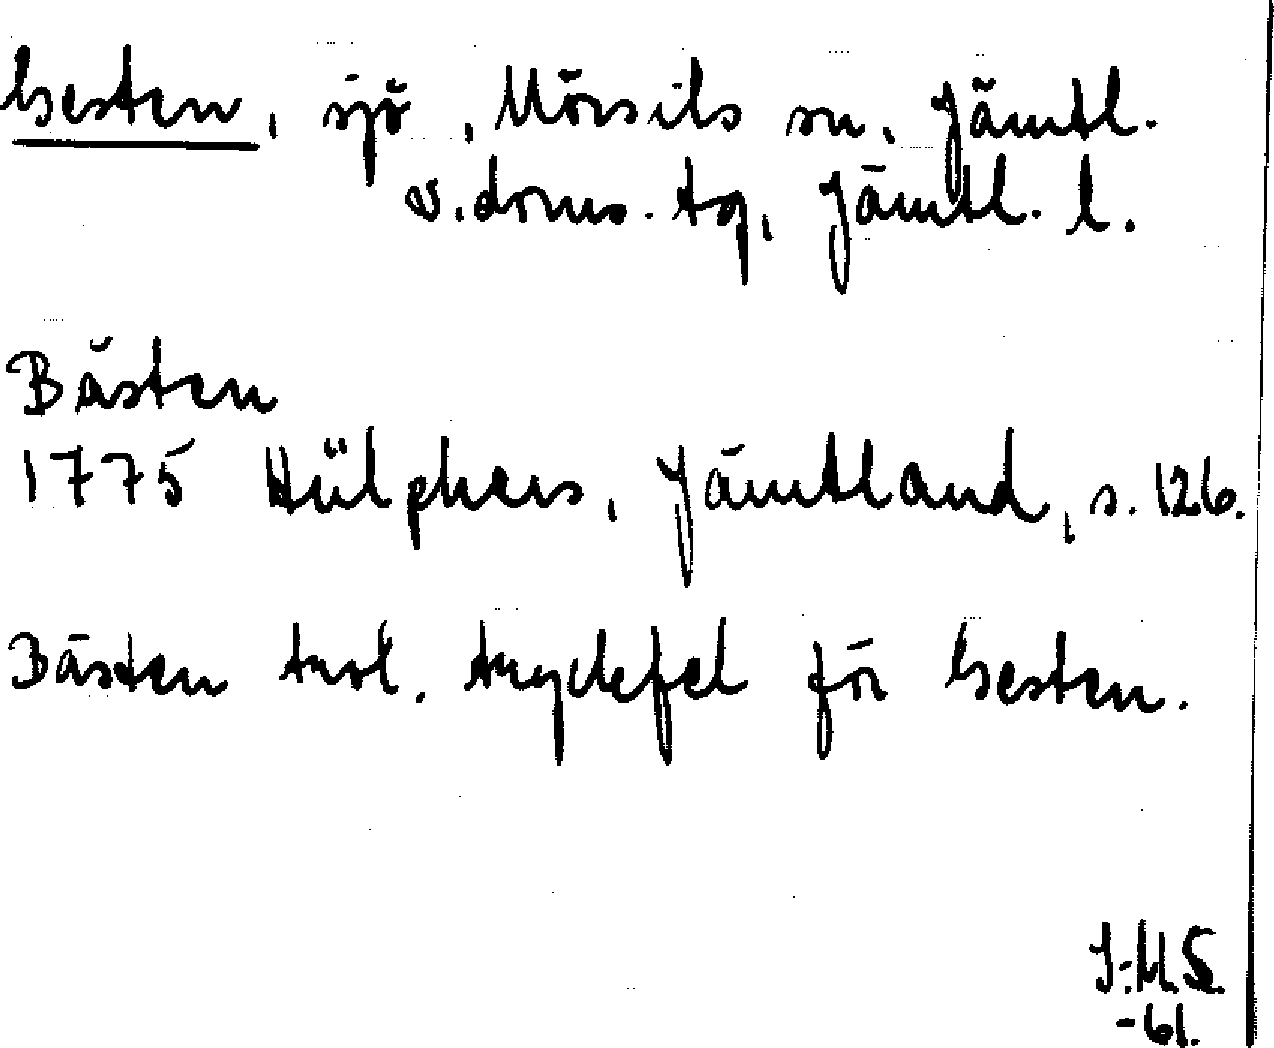 Gesten, sjö, Mörsils sn, Jämtl.
v. doms. tg, Jämtl. l.
Bästen
1775 Hülphers, Jämtland, s. 126.
Bästen trol. tryckfel för Gesten.
I-M.S.
-61.